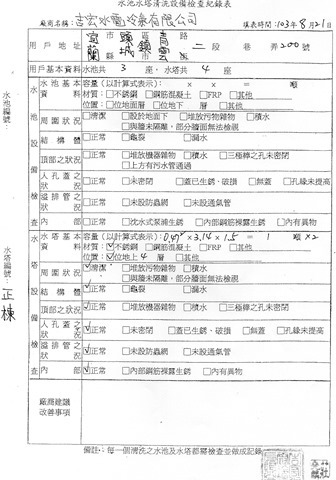 水池水塔清洗設備檢查紀錄表
廠商名稱:吉宏水電冷氣有限公司 填表時間:103年8月21
用戶地址 宜蘭 縣市 頭城 鄉鎮市區 青雲 路街 二 段 巷 弄 200號
用戶基本資料 水池共 3 座、水塔共 4 座
水池編號:
水池設備檢查
水池基本資料 容量(以計算式表示): × × = 噸
材質:□不銹鋼 □鋼筋混凝土 □FRP □其他
位置:□位地面層 □位地下 層 □其他
周圍狀況 □清潔 □設於地面下 □堆放污物雜物 □積水
□與牆未隔離、部分牆面無法檢視
結構體 □正常 □龜裂 □漏水
頂部之狀況 □正常 □堆放機器雜物 □積水 □三極棒之孔未密閉
□上方有污水管通過
人孔蓋之狀況 □正常 □未密閉 □蓋已生銹、破損 □無蓋 □孔緣未提高
溢排管之狀況 □正常 □未設防蟲網 □未設通氣管
內部 □正常 □沈水式泵浦生銹 □內部鋼筋裸露生銹 □內有異物
水塔編號:正棟
水塔設備檢查
水塔基本資料 容量(以計算式表示):0.47²×3.14×1.5=1 噸×2
材質:☑不銹鋼 □鋼筋混凝土 □FRP □其他
位置:☑位地上4 層 □其他
周圍狀況 ☑清潔 □堆放污物雜物 □積水
□與牆未隔離、部分牆面無法檢視
結構體 ☑正常 □龜裂 □漏水
頂部之狀況 ☑正常 □堆放機器雜物 □積水 □三極棒之孔未密閉
人孔蓋之狀況 ☑正常 □未密閉 □蓋已生銹、破損 □無蓋 □孔緣未提高
溢排管之狀況 ☑正常 □未設防蟲網 □未設通氣管
內部 ☑正常 □內部鋼筋裸露生銹 □內有異物
廠商建議改善事項
備註:每一個清洗之水池及水塔都需檢查並做成記錄